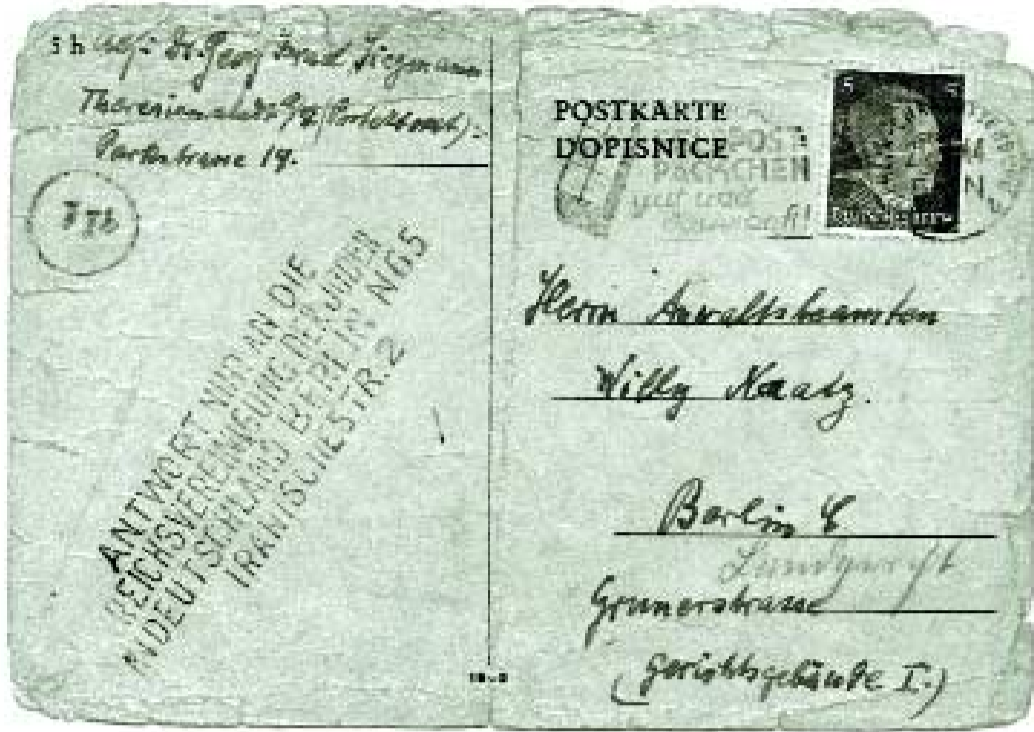 5 h Abs: Dr. Georg Israel Siegmann
Theresienstadt (Protektorat)
Parkstrasse 19.
ANTWORT NUR AN DIE
REICHSVEREINIGUNG DER JUDEN
IN DEUTSCHLAND BERLIN N65
IRANISCHESTR. 2
POSTKARTE
DOPISNICE
POST
PÄCKCHEN
nur
Herrn Anwaltsbeamten
Willy Naatz.
Berlin C
Landgericht
Grunerstrasse
(Gerichtsgebäude I.)